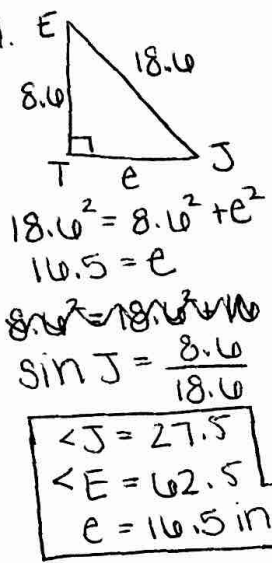 1.
E
18.6
8.6
T
e
J
18.6² = 8.6² + e²
16.5 = e
sin J = 8.6/18.6
<J = 27.5
<E = 62.5
e = 16.5 in